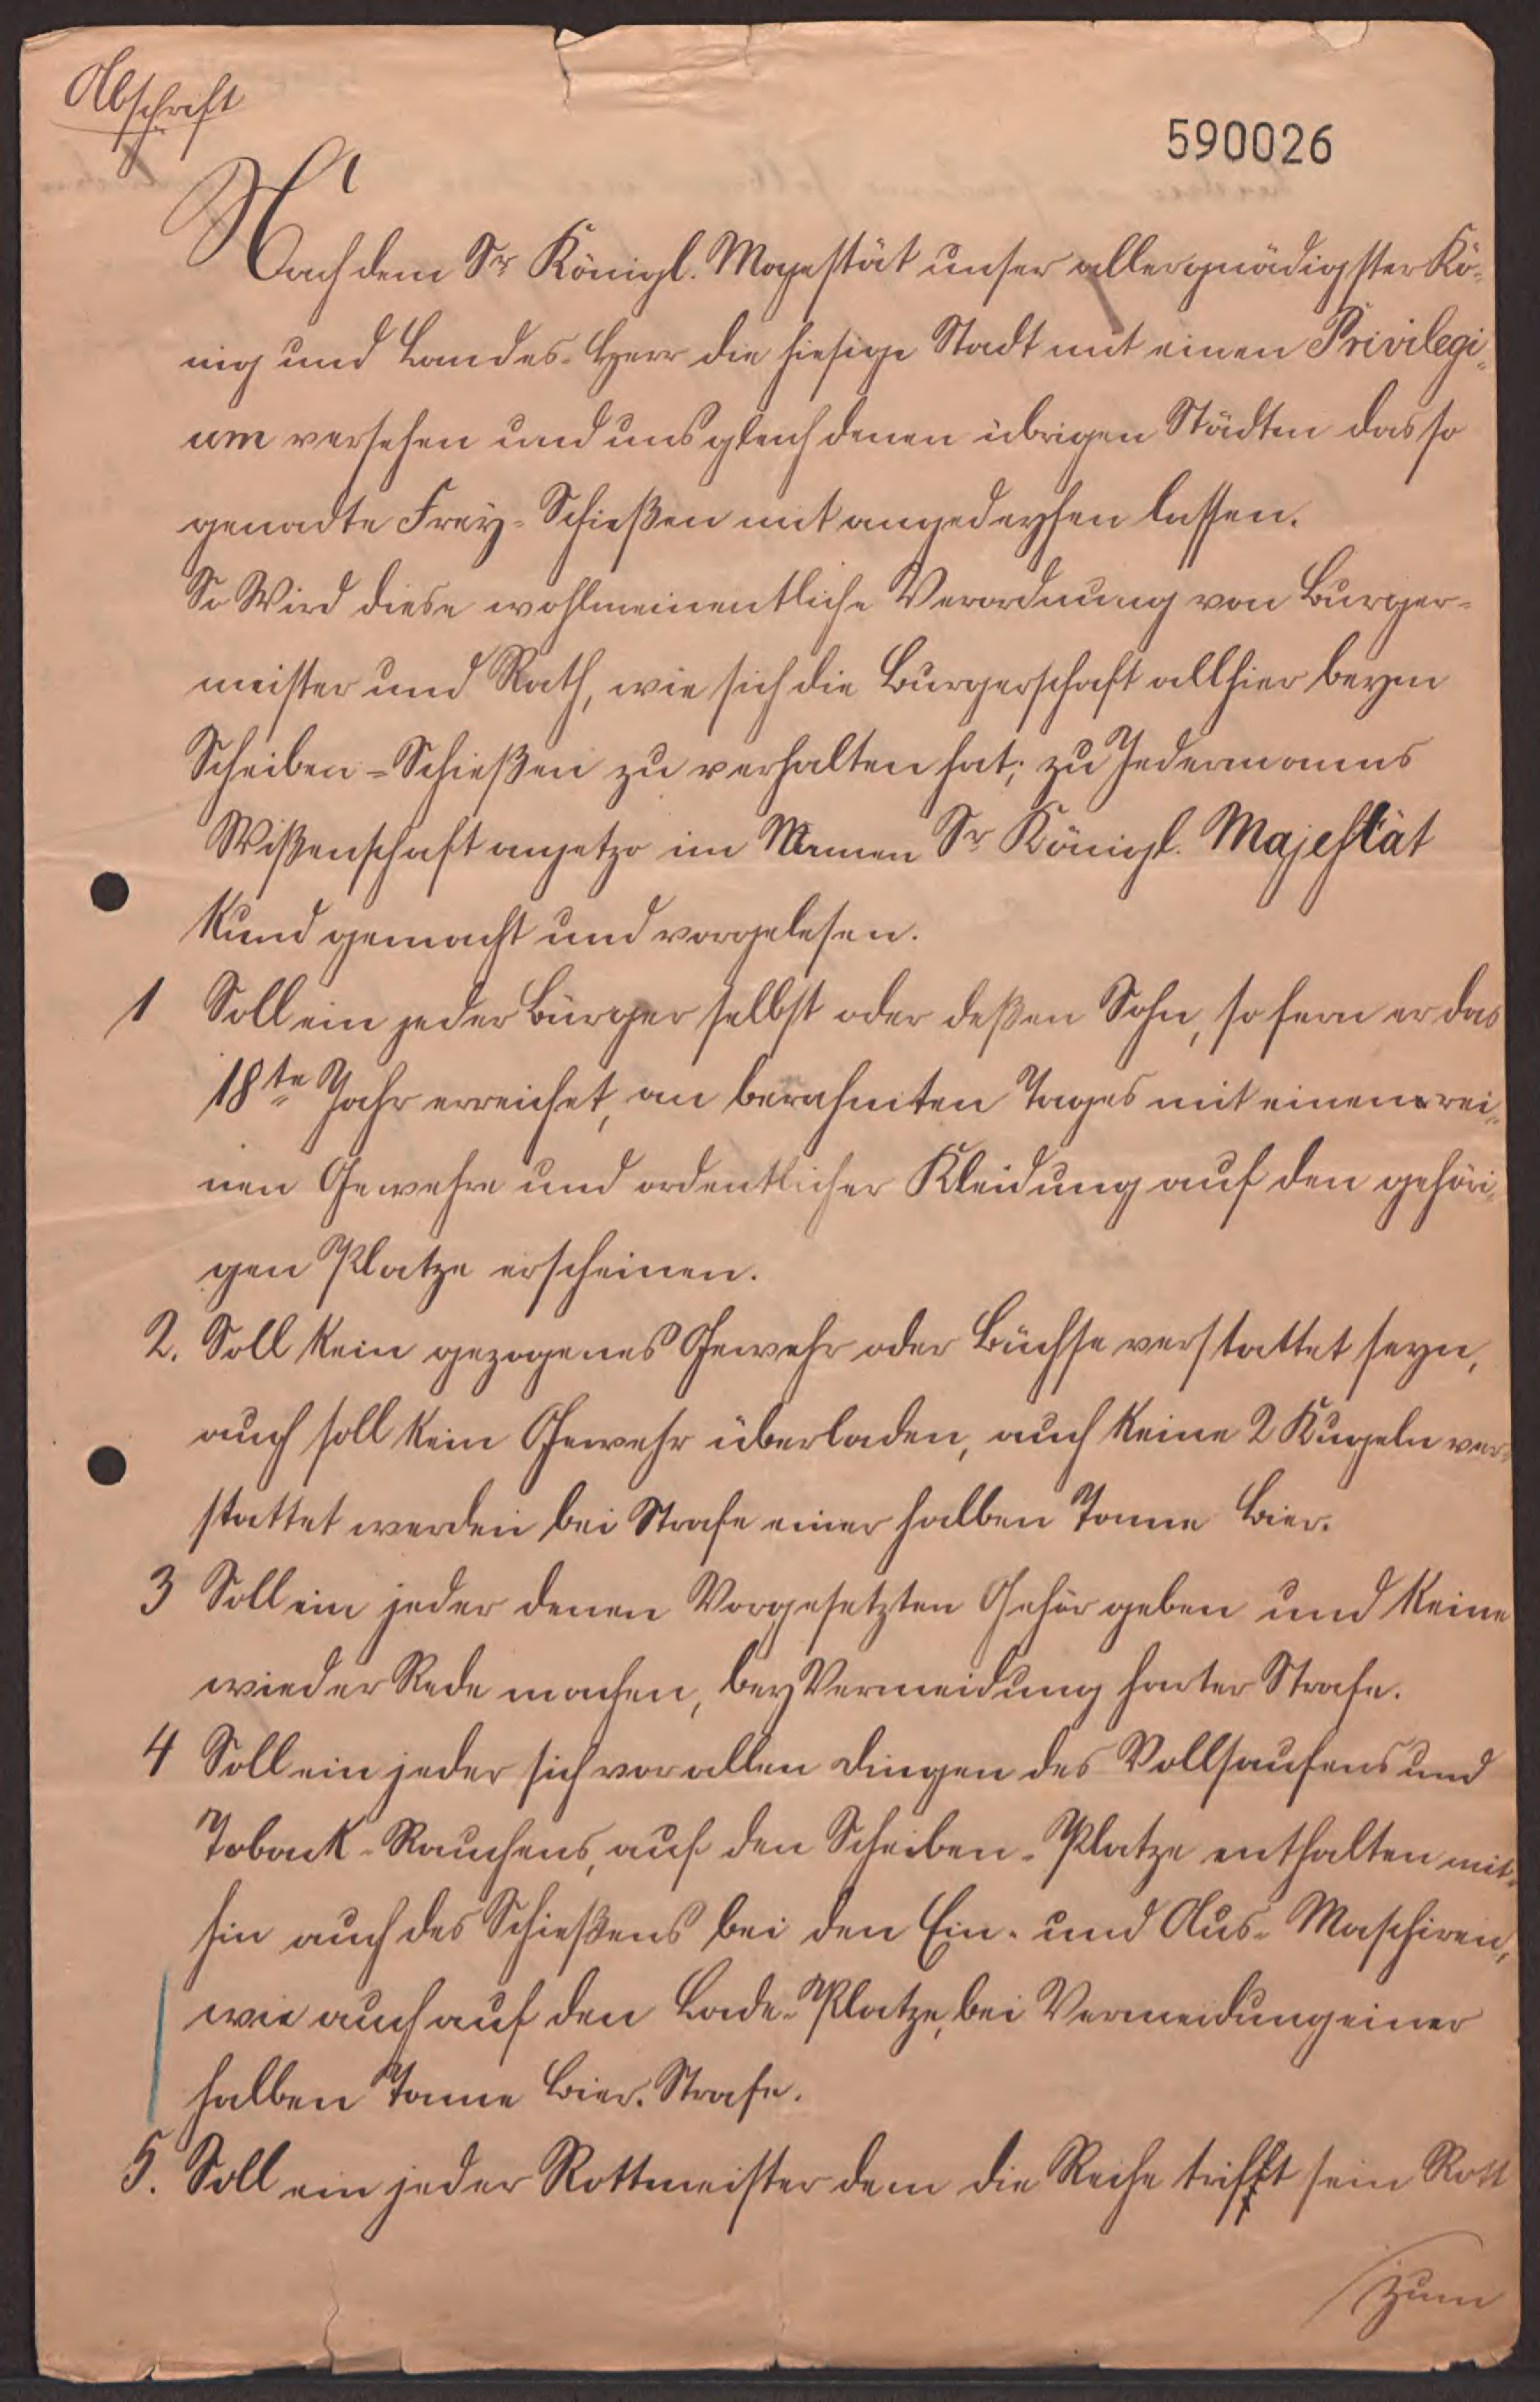 Abschrift
590026
Nachdem Sr Königl. Mayestät unser allergnädigster Kö-
nig und Landes-Herr die hiesige Stadt mit einen Privilegi-
um versehen und uns gleich denen übrigen Städten das so
genadte Frey-Schießen mit angedeyhen lassen.
So Wird diese wohlmeinentliche Verordnung von Burger-
meister und Rath, wie sich die Burgerschaft allhier beym
Scheiben-Schießen zu verhalten hat; zu Jedermanns
Wißenschaft anjetzo im Namen Sr Königl. Majestät
Kund gemacht und vorgelesen.
1 Soll ein jeder Bürger selbst oder deßen Sohn, so fern er das
18te Jahr erreichet, an berahmten Tages mit einen rei-
nen Gewehre und ordentlicher Kleidung auf den gehöri-
gen Platze erscheinen.
2. Soll kein gezogenes Gewehr oder Büchse verstattet seyn,
auch soll kein Gewehr überladen, auch keine 2 Kugeln ver-
stattet werden bei Strafe einer halben Tonne Bier.
3 Soll ein jeder denen Vorgesetzten Gehör geben und keine
wieder Rede machen, bey Vermeidung harter Strafe.
4 Soll ein jeder sich vor allen Dingen des Vollsaufens und
Toback-Rauchens, auf den Scheiben-Platze enthalten mit-
hin auch des Schießens bei den Ein- und Aus-Maschiren,
wie auch auf den Lade-Platze, bei Vermeidung einer
halben Tonne Bier-Strafe.
5. Soll ein jeder Rottmeister dem die Reihe trifft sein Rott
zum